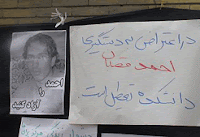 در اعتراض به دستگیری
احمد قصابان
دانشکده تعطیل است
احمد
را
آزاد کنید